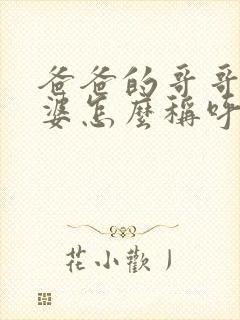 爸爸的哥哥
婆怎麼稱呼
花小歡丿